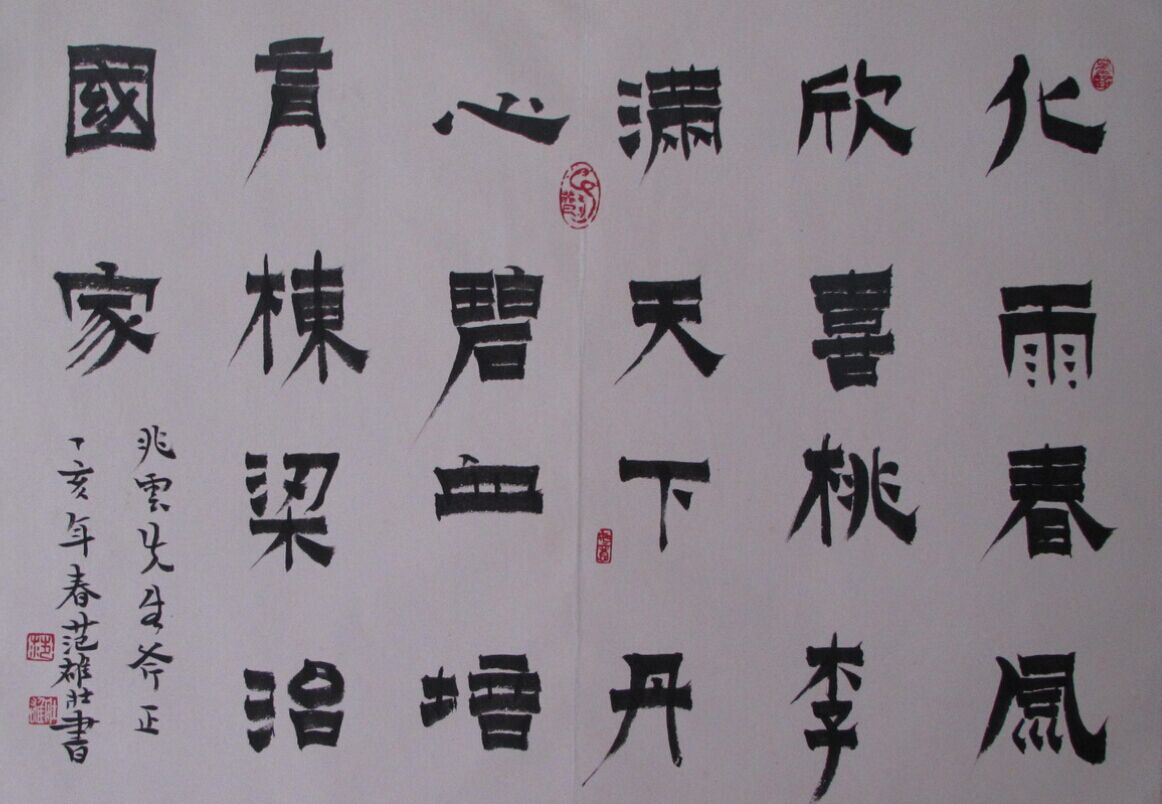 化雨春風
欣喜桃李
滿天下丹
心碧血培
育棟梁治
國家
兆雲先生斧正
丁亥年春范雄壯書